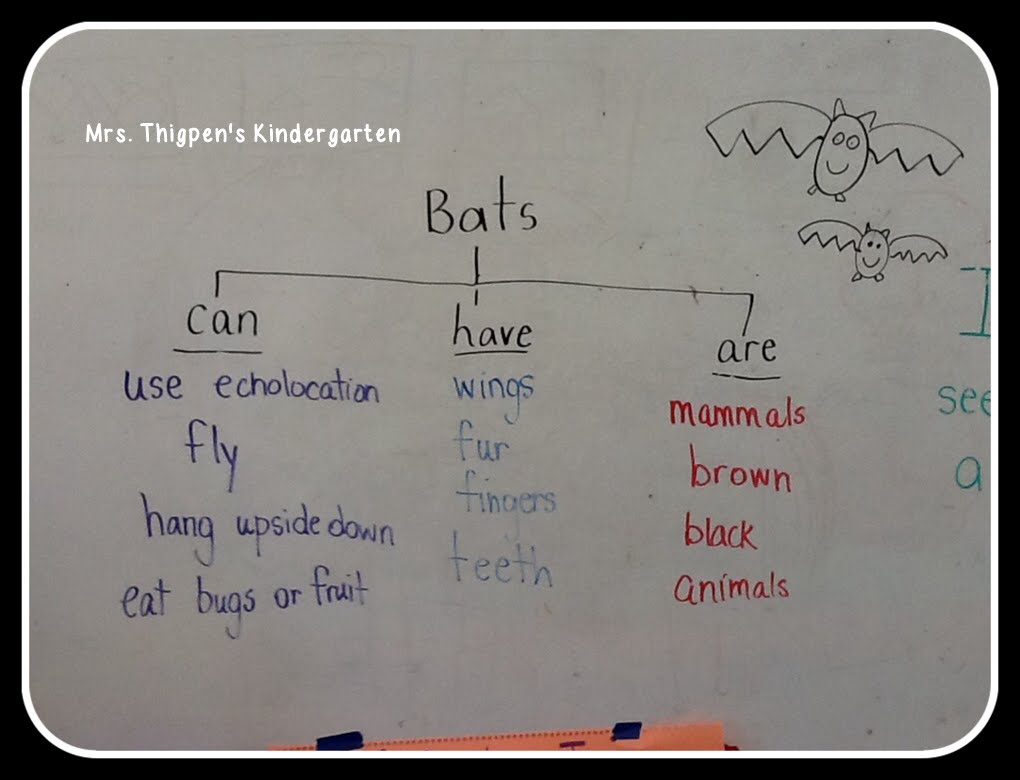 Mrs. Thigpen's Kindergarten
Bats
can
use echolocation
fly
hang upside down
eat bugs or fruit
have
wings
fur
fingers
teeth
are
mammals
brown
black
animals
see
a